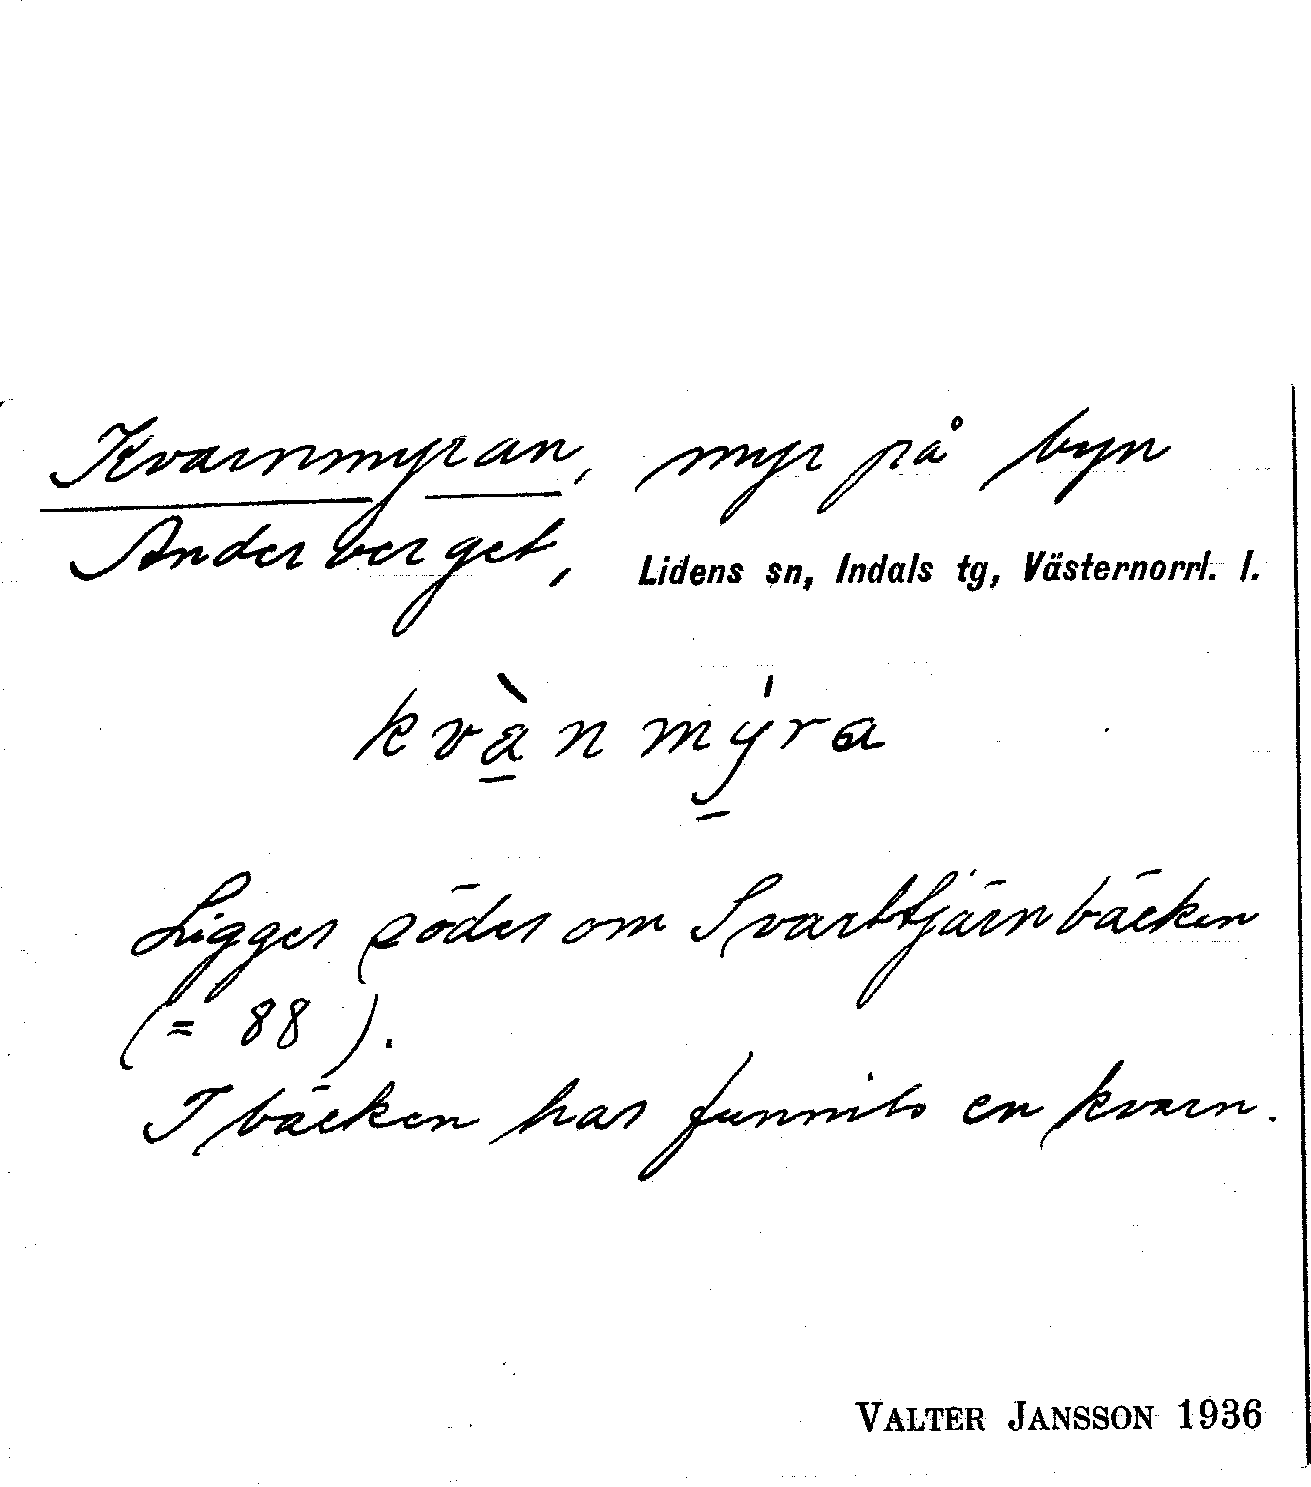 Kvarnmyran, myr på byn
Anderberget, Lidens sn, Indals tg, Västernorrl. l.
kvànmýra
Ligger söder om Svarttjärnbäcken
(= 88).
I bäcken har funnits en kvarn.
VALTER JANSSON 1936